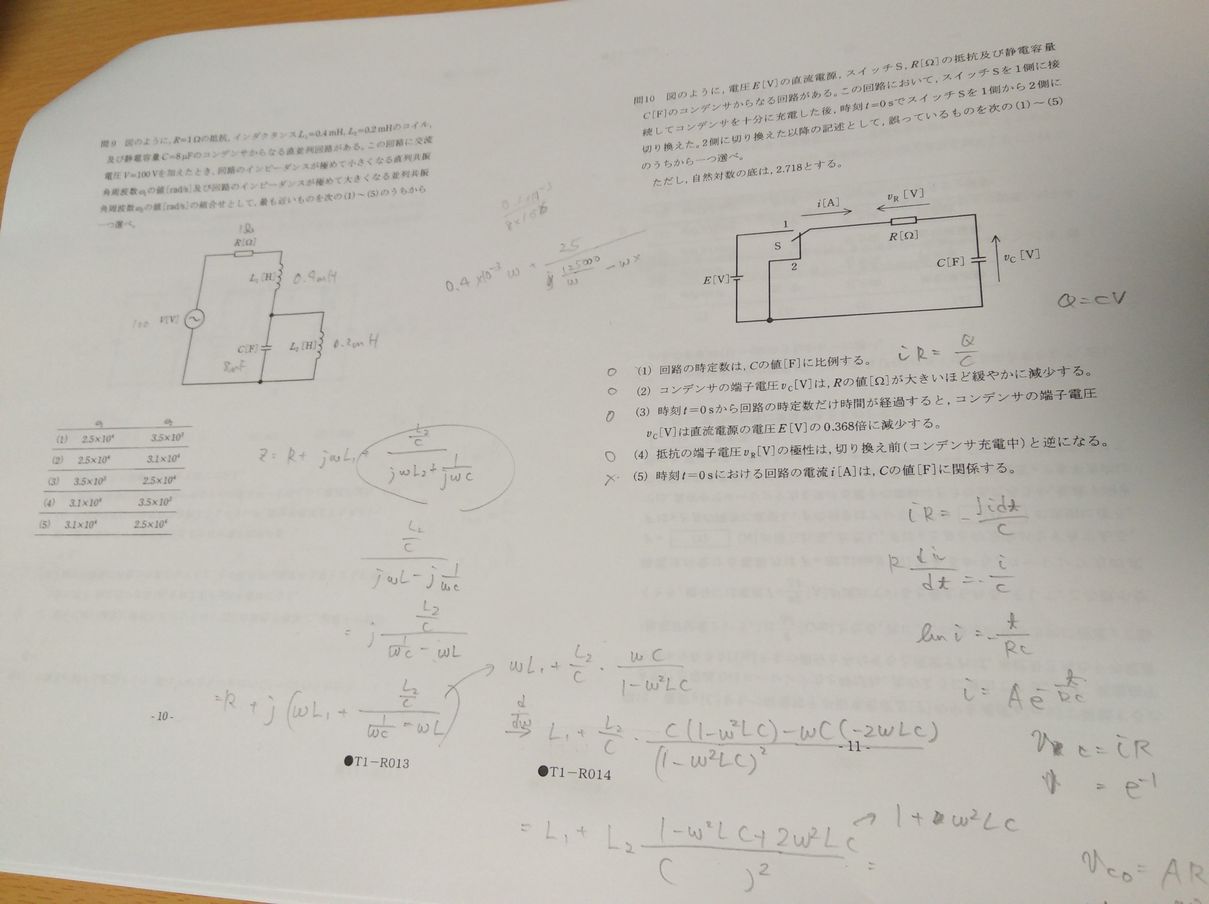 問9 図のように，R=1Ωの抵抗，インダクタンスL₁=0.4mH，L₂=0.2mHのコイル，
及び静電容量C=8μFのコンデンサからなる直並列回路がある。この回路に交流
電圧V=100Vを加えたとき，回路のインピーダンスが極めて小さくなる直列共振
角周波数ω₁の値[rad/s]及び回路のインピーダンスが極めて大きくなる並列共振
角周波数ω₂の値[rad/s]の組合せとして，最も近いものを次の(1)～(5)のうちから
一つ選べ。
1Ω
R[Ω]
L₁[H] 0.4mH
100 V[V]
C[F] L₂[H] 0.2mH
8μF
ω₁ ω₂
(1) 2.5×10⁴ 3.5×10³
(2) 2.5×10⁴ 3.1×10⁴
(3) 3.5×10³ 2.5×10⁴
(4) 3.1×10⁴ 3.5×10³
(5) 3.1×10⁴ 2.5×10⁴
0.4×10⁻³ ω + 25 / (125000/ω - ω×
Z = R + jωL₁ + (L₂/C) / (jωL₂ + 1/jωC)
(L₂/C) / (jωL - j 1/ωC)
= j (L₂/C) / (1/ωC - ωL)
= R + j(ωL₁ + (L₂/C) / (1/ωC - ωL))
→ ωL₁ + L₂/C · ωC / (1-ω²LC)
d/dω ⇒ L₁ + L₂/C · (C(1-ω²LC) - ωC(-2ωLC)) / (1-ω²LC)²
= L₁ + L₂ (1-ω²LC+2ω²LC) / ( )² =
→ 1+ω²LC
- 10 -
●T1-R013
問10 図のように，電圧E[V]の直流電源，スイッチS，R[Ω]の抵抗及び静電容量
C[F]のコンデンサからなる回路がある。この回路において，スイッチSを1側に接
続してコンデンサを十分に充電した後，時刻t=0sでスイッチSを1側から2側に
切り換えた。2側に切り換えた以降の記述として，誤っているものを次の(1)～(5)
のうちから一つ選べ。
ただし，自然対数の底は，2.718とする。
i[A] vR[V]
1
S R[Ω]
2
E[V] C[F] vC[V]
Q=CV
iR = Q/C
○ (1) 回路の時定数は，Cの値[F]に比例する。
○ (2) コンデンサの端子電圧vC[V]は，Rの値[Ω]が大きいほど緩やかに減少する。
○ (3) 時刻t=0sから回路の時定数だけ時間が経過すると，コンデンサの端子電圧
vC[V]は直流電源の電圧E[V]の0.368倍に減少する。
○ (4) 抵抗の端子電圧vR[V]の極性は，切り換え前(コンデンサ充電中)と逆になる。
× (5) 時刻t=0sにおける回路の電流i[A]は，Cの値[F]に関係する。
iR = - ∫idt/C
R di/dt = - i/C
ln i = - t/RC
i = A e^-t/RC
vc = iR
= e⁻¹
vc0 = AR
- 11 -
●T1-R014